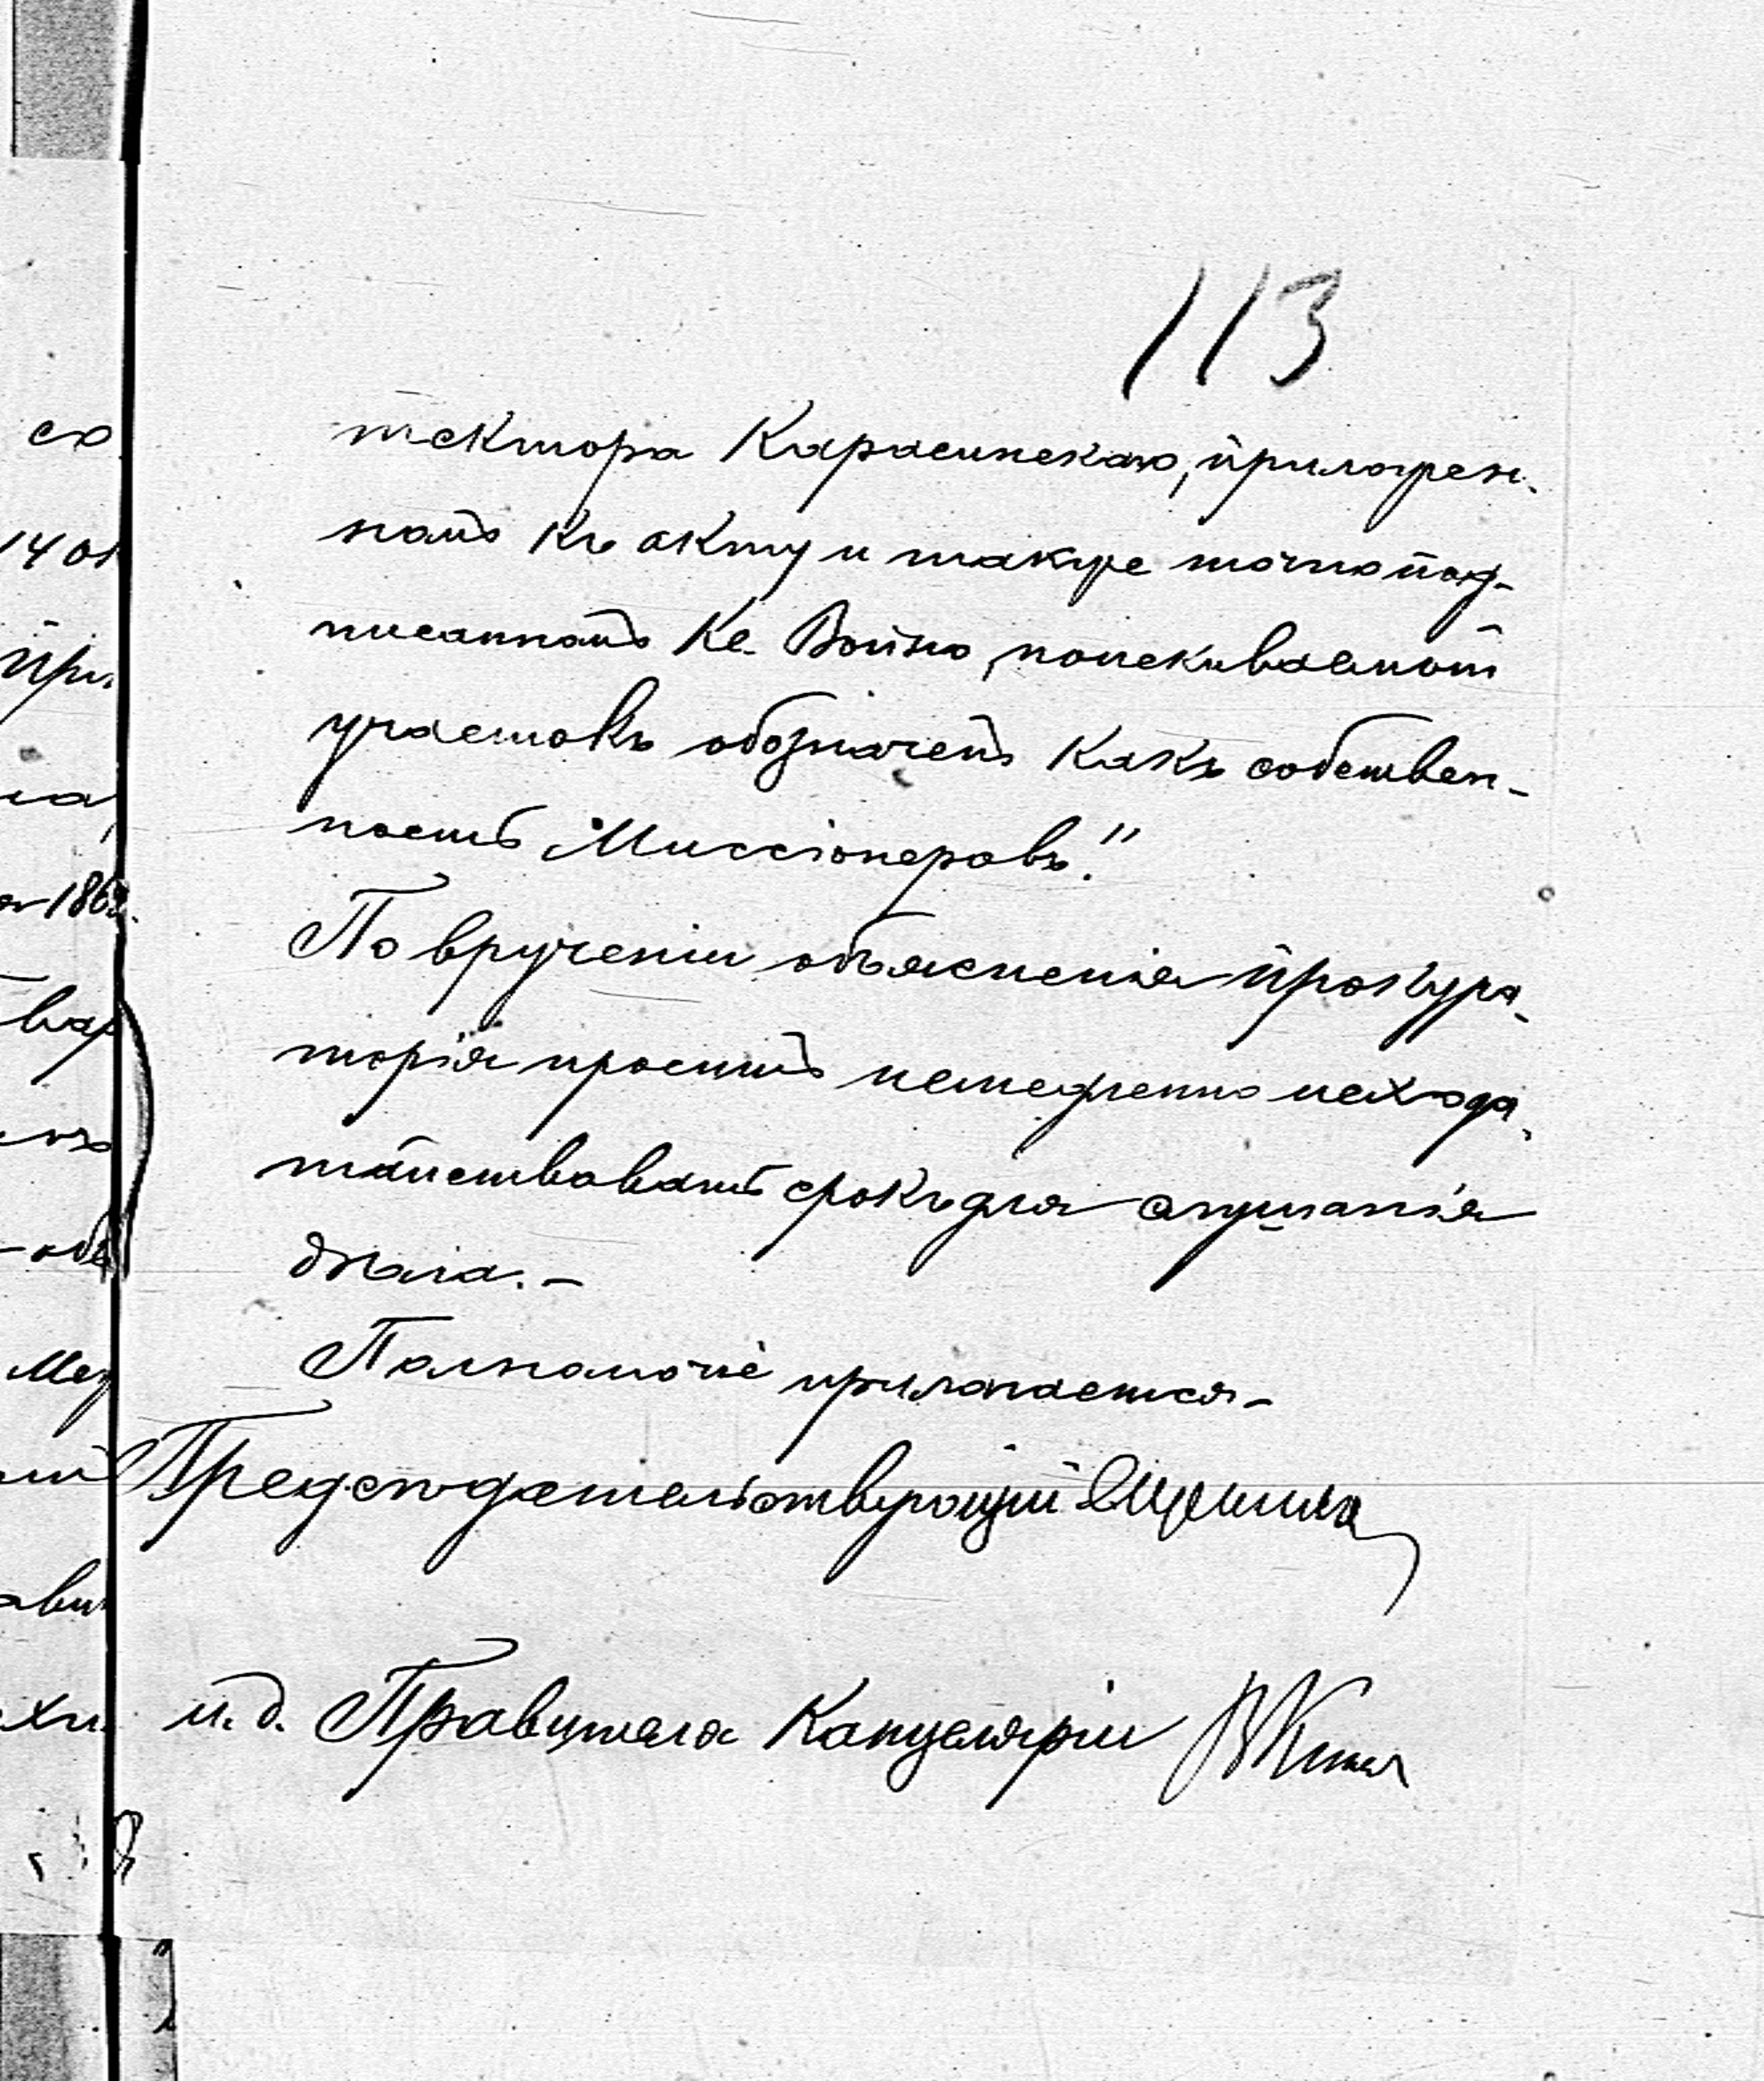 113
тектора Карасинскаго, приложен-
номъ къ акту и также точно под-
писанномъ Кс. Войно, поискиваемый
участокъ обозначенъ какъ собствен-
ность Миссіонеровъ."
По врученіи объясненія Прокура-
торія проситъ немедленно исхода-
тайствовать срокъ для слушанія
дѣла. –
Полномочіе прилагается. –
Предсѣдательствующій
и. д. Правителя Канцеляріи